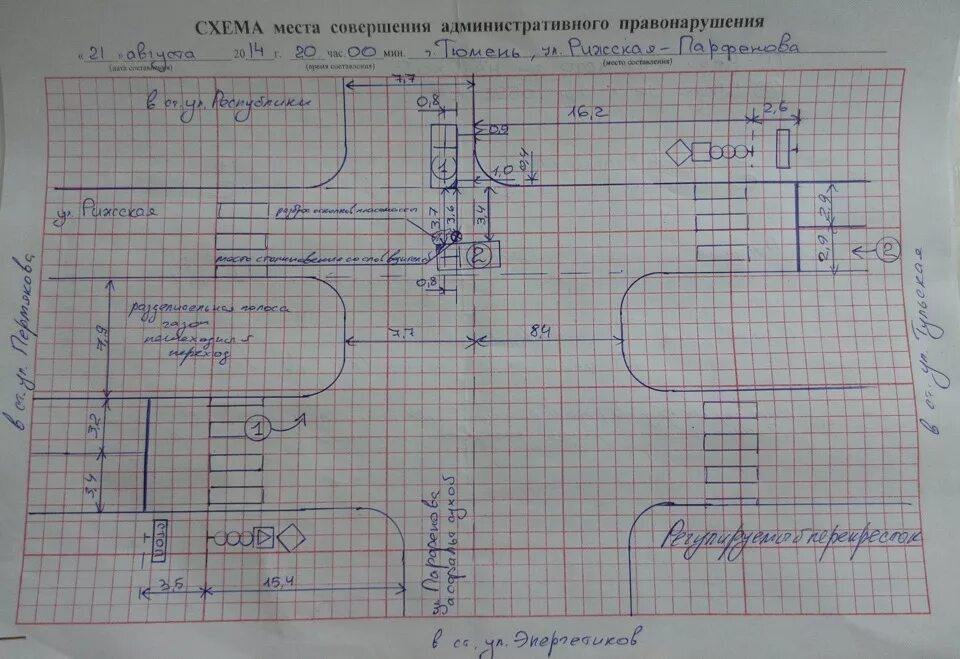 СХЕМА места совершения административного правонарушения
«21» августа 2014 г. 20 час. 00 мин. г. Тюмень, ул. Рижская - Парфенова
(дата составления) (время составления) (место составления)
7,7
в ст. ул. Республики
0,8
16,2
2,6
0,9
1
1,0
0,4
ул. Рижская
разброс осколков пластмассы
3,7
3,6
3,4
2,9
2,9
2
место столкновения со слов водителей
2
0,8
в ст. ул. Пермякова
в ст. ул. Тульская
7,9
разделительная полоса
газон
пешеходный
переход
7,7
8,4
3,2
1
3,4
ул. Парфенова
асфальт сухой
Регулируемый перекресток
STOP
3,5
15,4
в ст. ул. Энергетиков